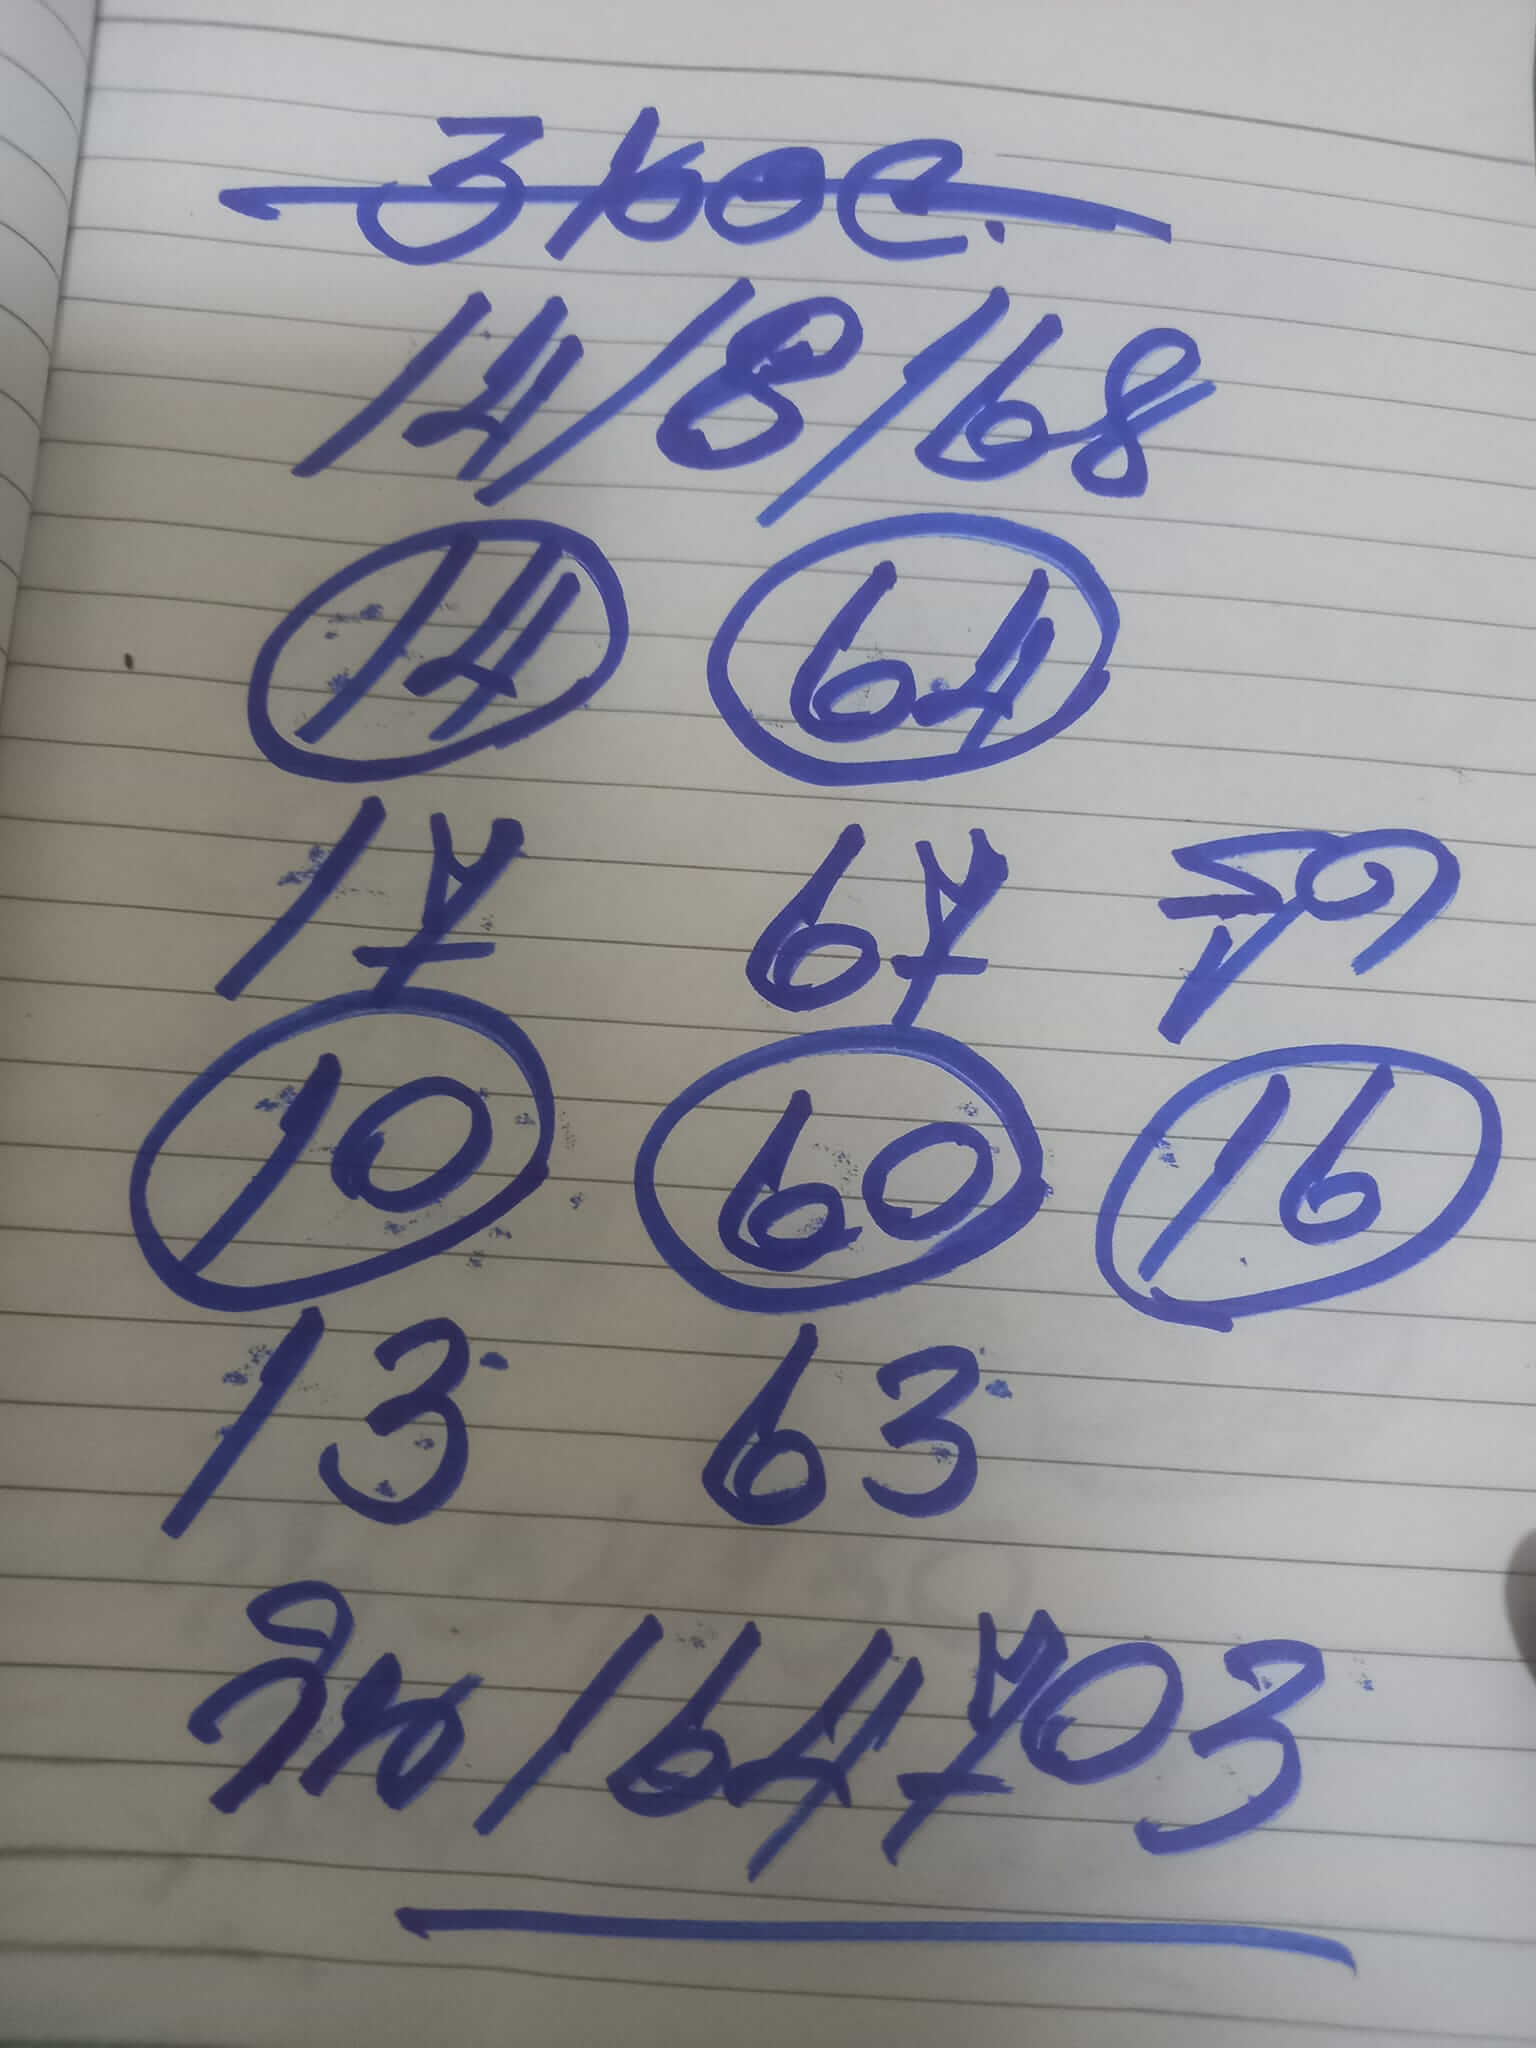 14/8/68
14 64
17 67 รูด
10 60 16
13 63
วิน 164703